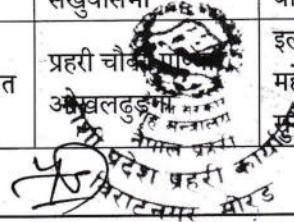 संखुवासभा
प्रहरी चौकी
त
ओखलढुङ्गा
इल
मह
नेपाल सरकार
गृह मन्त्रालय
नेपाल प्रहरी
प्रदेश प्रहरी कार्यालय
विराटनगर मोरङ